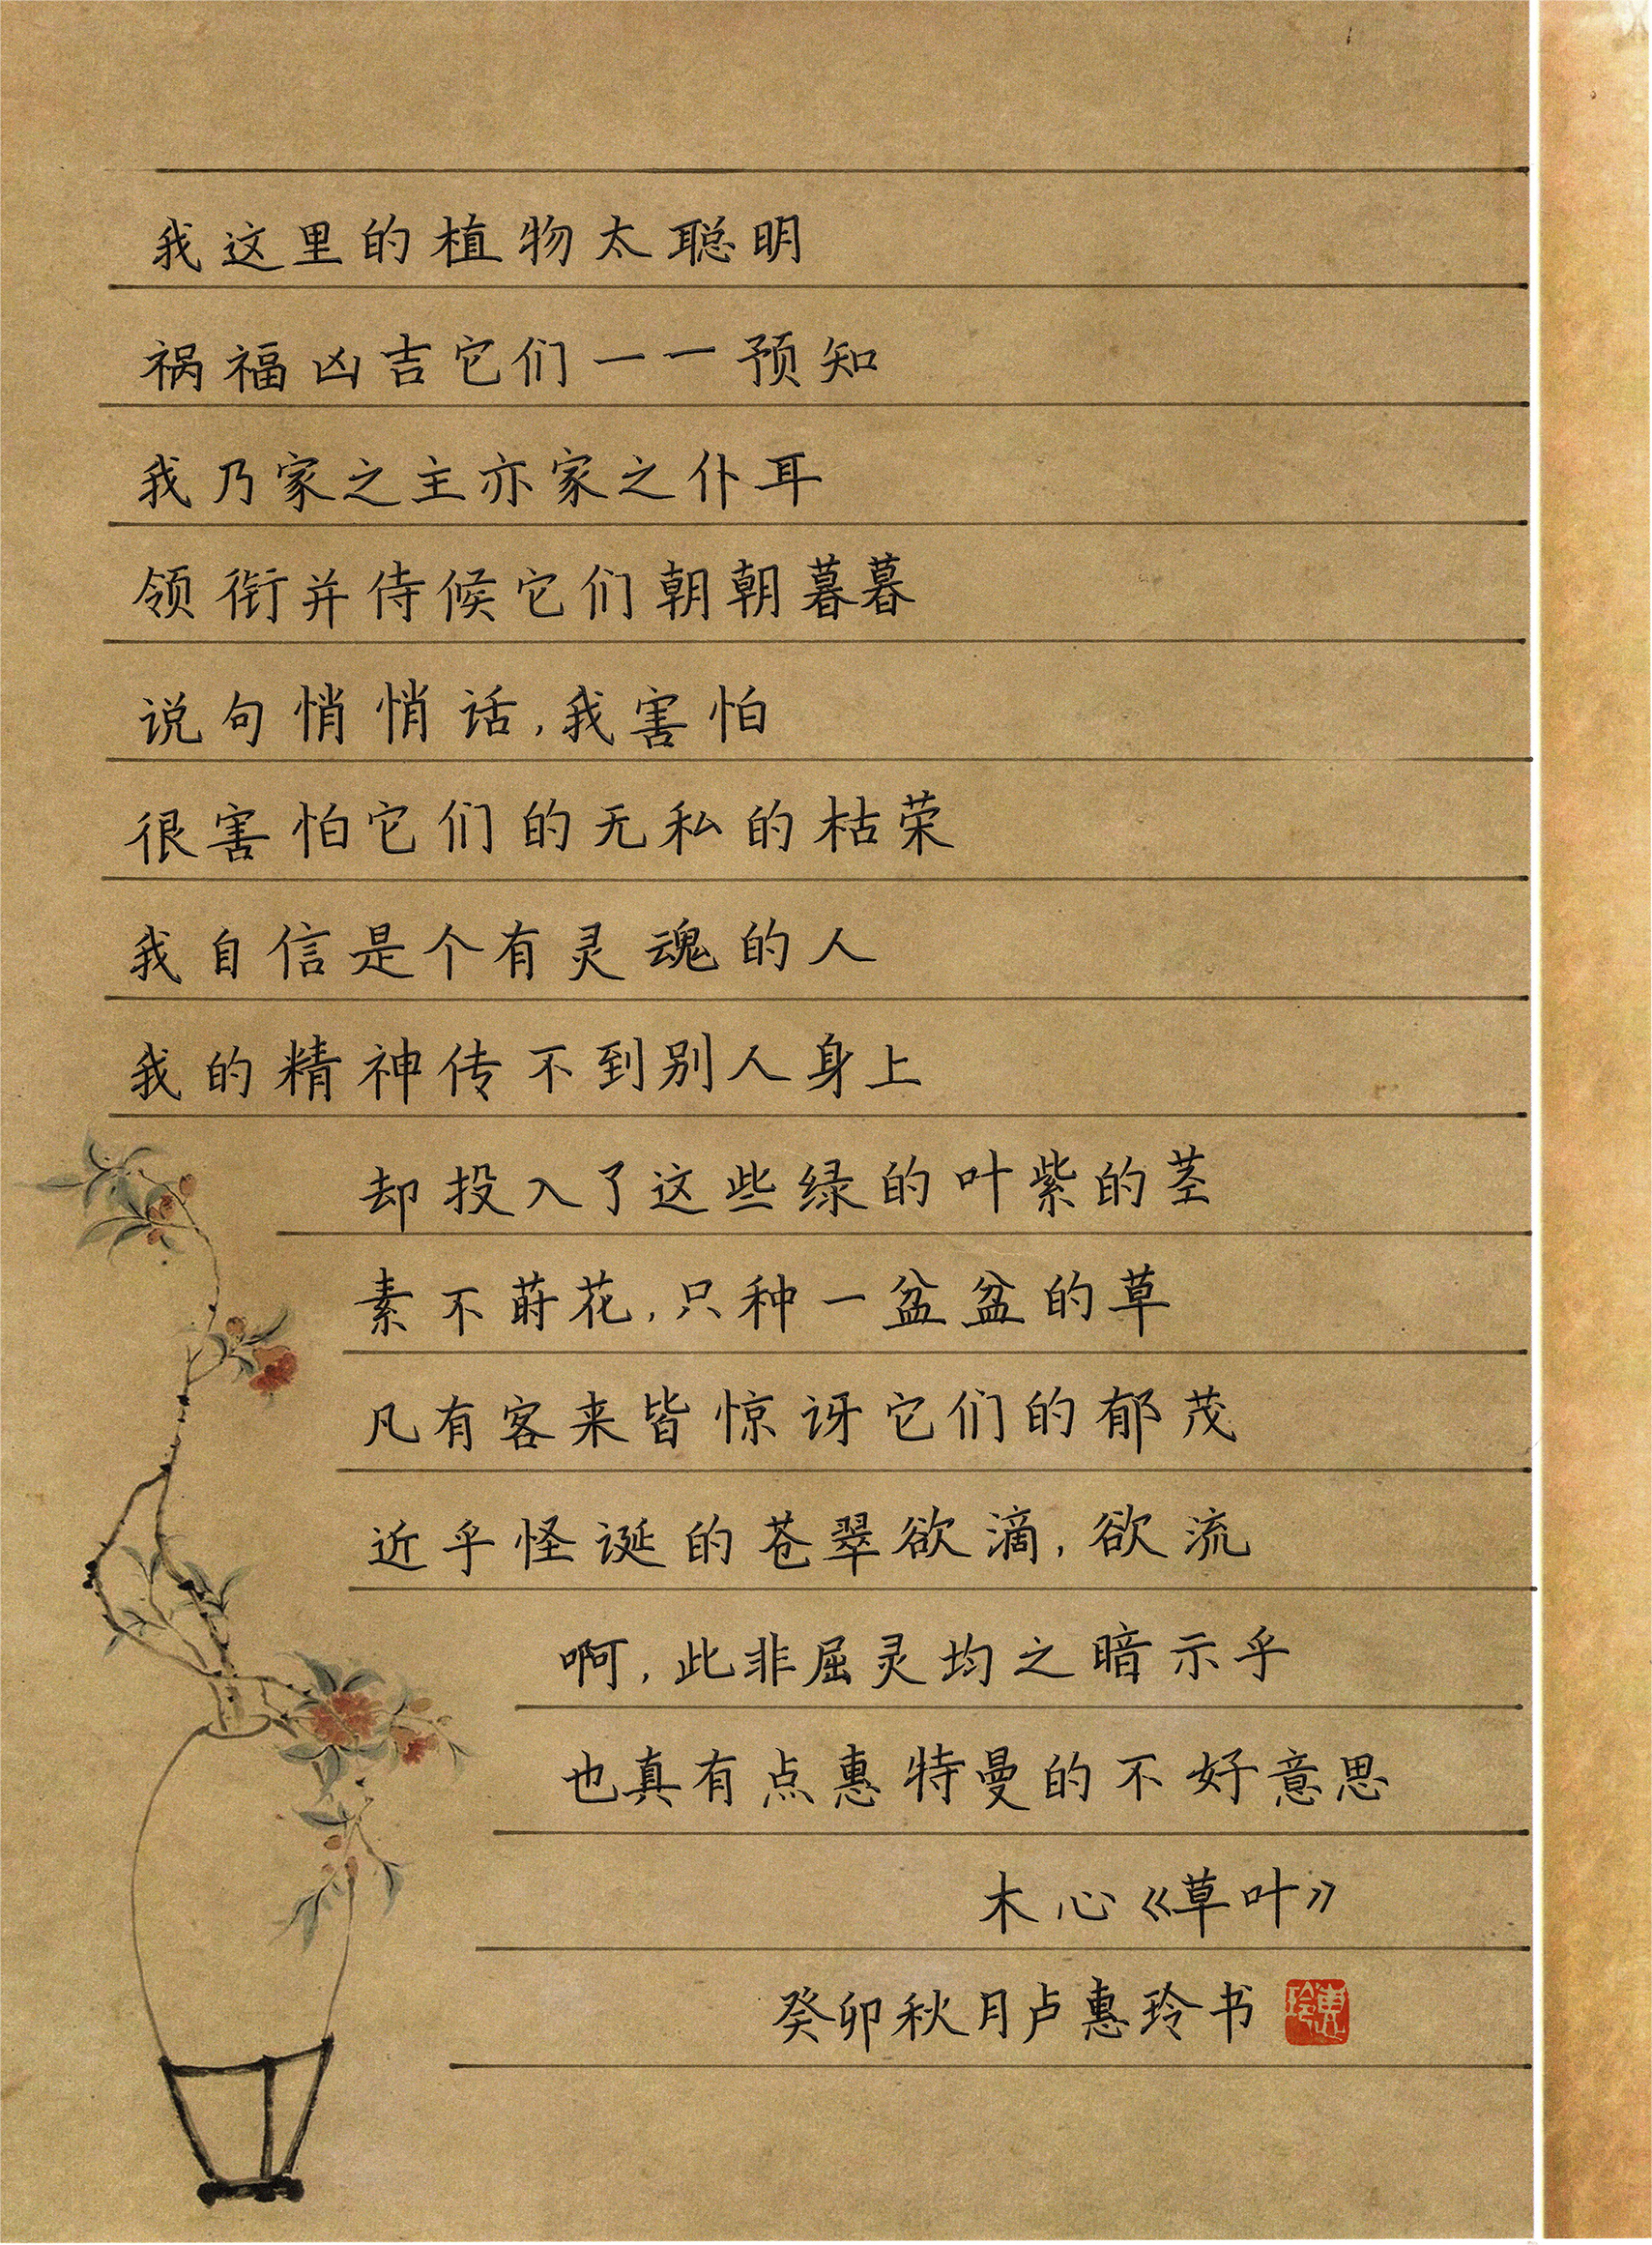 我这里的植物太聪明
祸福凶吉它们一一预知
我乃家之主亦家之仆耳
领衔并侍候它们朝朝暮暮
说句悄悄话,我害怕
很害怕它们的无私的枯荣
我自信是个有灵魂的人
我的精神传不到别人身上
却投入了这些绿的叶紫的茎
素不莳花,只种一盆盆的草
凡有客来皆惊讶它们的郁茂
近乎怪诞的苍翠欲滴,欲流
啊,此非屈灵均之暗示乎
也真有点惠特曼的不好意思
木心《草叶》
癸卯秋月卢惠玲书
惠玲